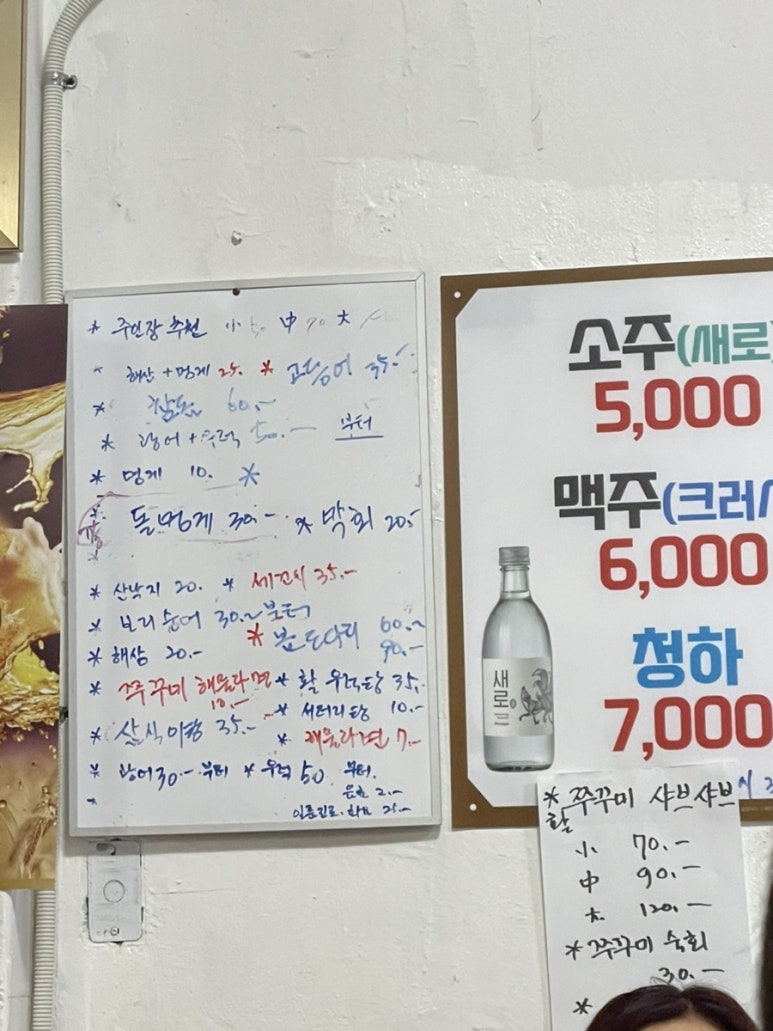 * 주인장 추천 小 50 中 70 大
* 해삼 + 멍게 25. * 고등어 35.-
* 참돔 60.-
* 광어 + 우럭 50.- 부터
* 멍게 10. *
* 돌멍게 30.- * 막회 20.-
* 산낙지 20. * 세꼬시 35.-
* 보리숭어 30.~ 부터
* 해삼 20.- * 봄도다리 60.~
90.~
* 쭈꾸미 해물라면 * 활 우럭탕 35.-
10.-
* 삼식이탕 35.- * 서더리탕 10.-
* 해물라면 7.-
* 광어 30.- 부터 * 우럭 50 부터.
2.-
일품진로. 화요 25.-
소주(새로
5,000
맥주(크러시
6,000
청하
7,000
새로
* 쭈꾸미 샤브샤브
활
小 70.-
中 90.-
大 120.-
* 쭈꾸미 숙회
30.-
*